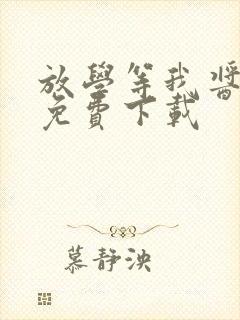 放學等我醬
免費下載
慕静泱